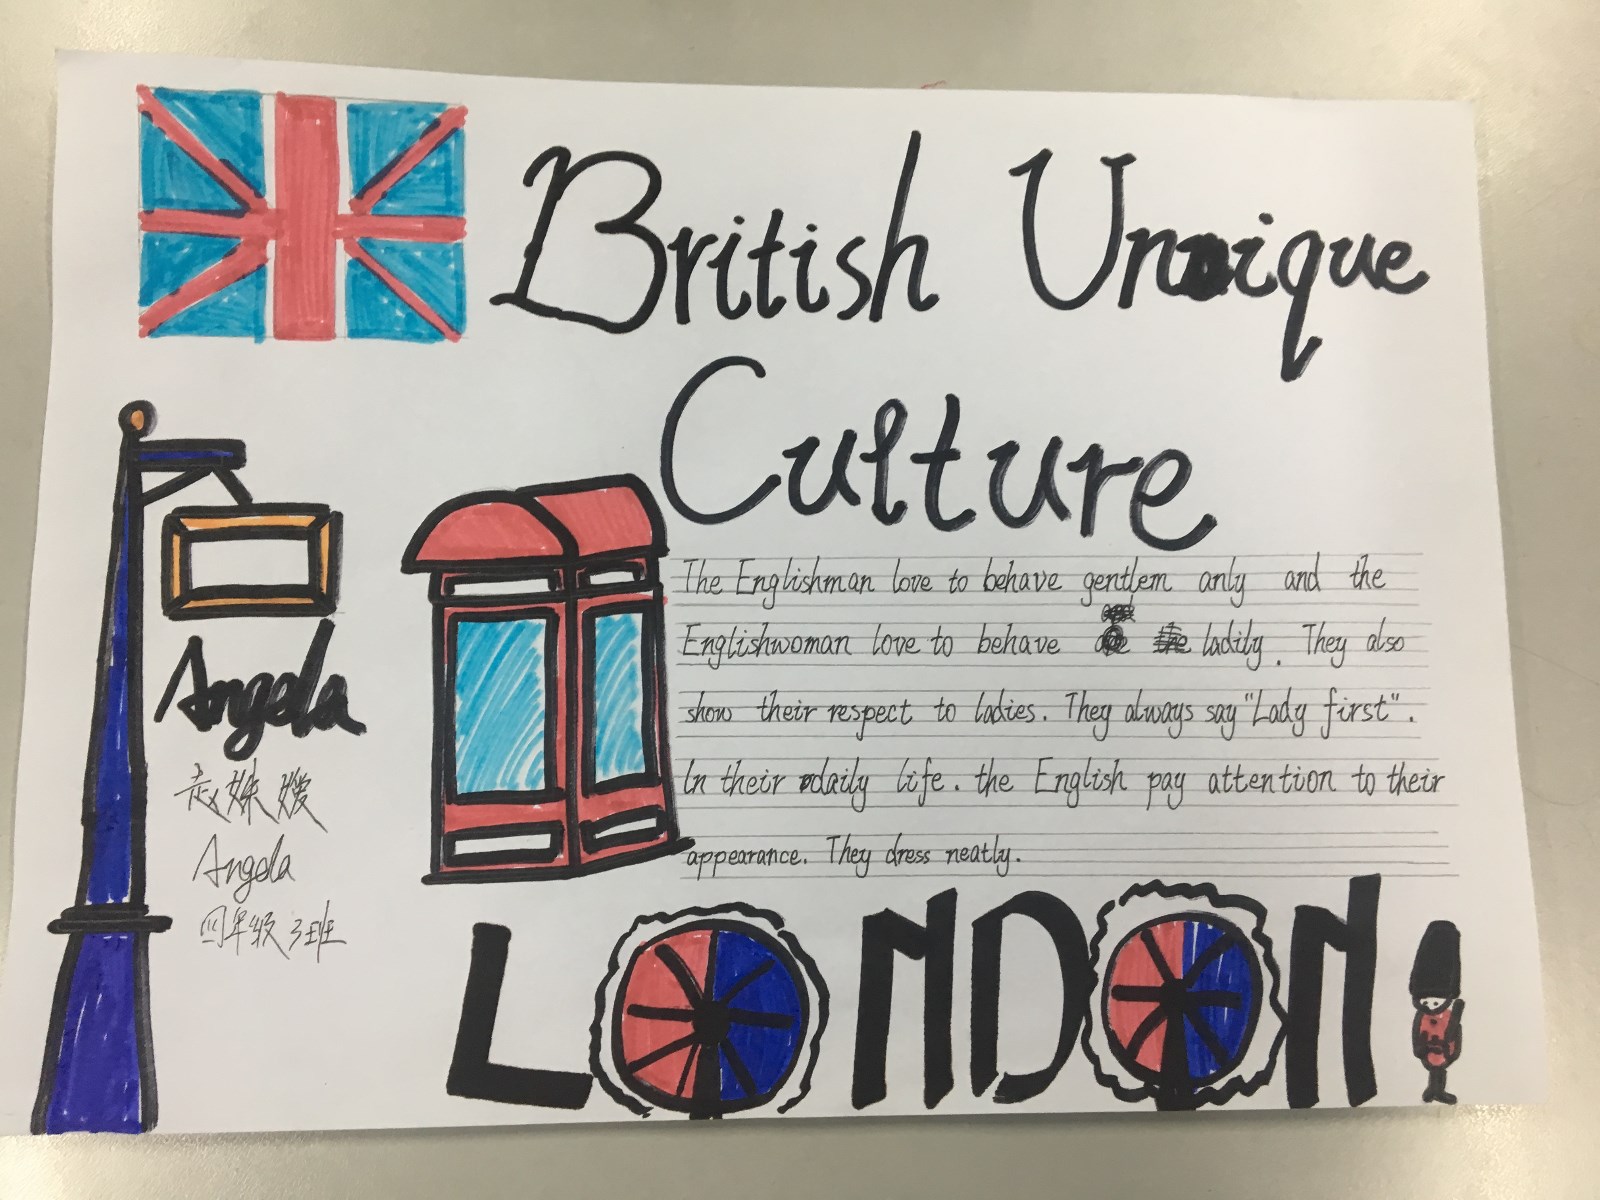 British Unique
Culture
The Englishman love to behave gentlem anly and the
Englishwoman love to behave ladily. They also
show their respect to ladies. They always say "Lady first".
In their daily life. the English pay attention to their
appearance. They dress neatly.
Angela
赵姝媛
Angela
四年级3班
LONDON